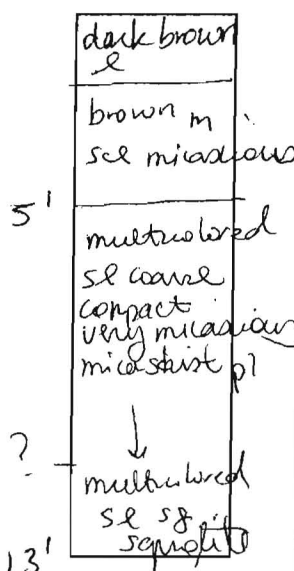 dark brown
l
brown m
scl micacious
5'
multicolored
sl coarse
compact
very micacious
micashist pl
?
multicolored
sl sg
saprolite
13'